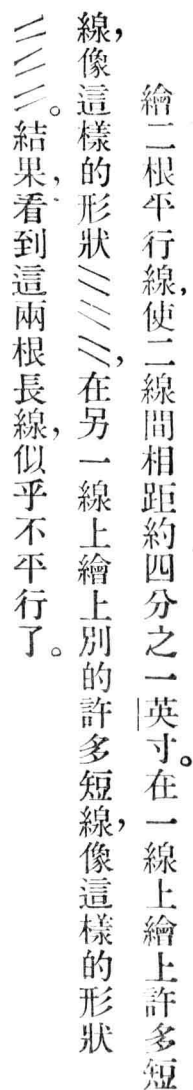 繪二根平行線,使二線間相距約四分之一英寸。在一線上繪上許多短
線,像這樣的形狀\\\\\\,在另一線上繪上別的許多短線,像這樣的形狀
//////。結果,看到這兩根長線,似乎不平行了。